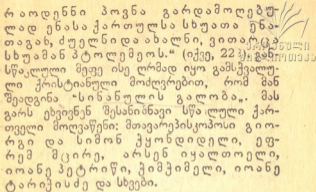 რაოდენნი პოვნა გარდამოღებუ-
ლად ენასა ქართულსა სხუათა ენა-
თაგან, ძუელნიდა ახალნი, ვითარცა
სხუამან პტოლემეოს.“ (იქვე, 22
სწავლული მეფე ისე ღრმად იყო გამსჭვალუ-
ლი ქრისტიანული მოძღვრებით, რომ მან
შეადგინა “სინანულის გალობა„. მას
გარს ეხვივნენ შესანიშნავი სწავლული ქარ-
თველი მოღვაწენი: მთავარეპისკოპოსი გიო-
რგი და სიმონ ჭყონდიდელი, ეფ-
რემ მცირე, არსენ იყალთოელი,
იოანე პეტრიწი, ჭიმჭიმელი, იოანე
ტარიჭისძე და სხვები.